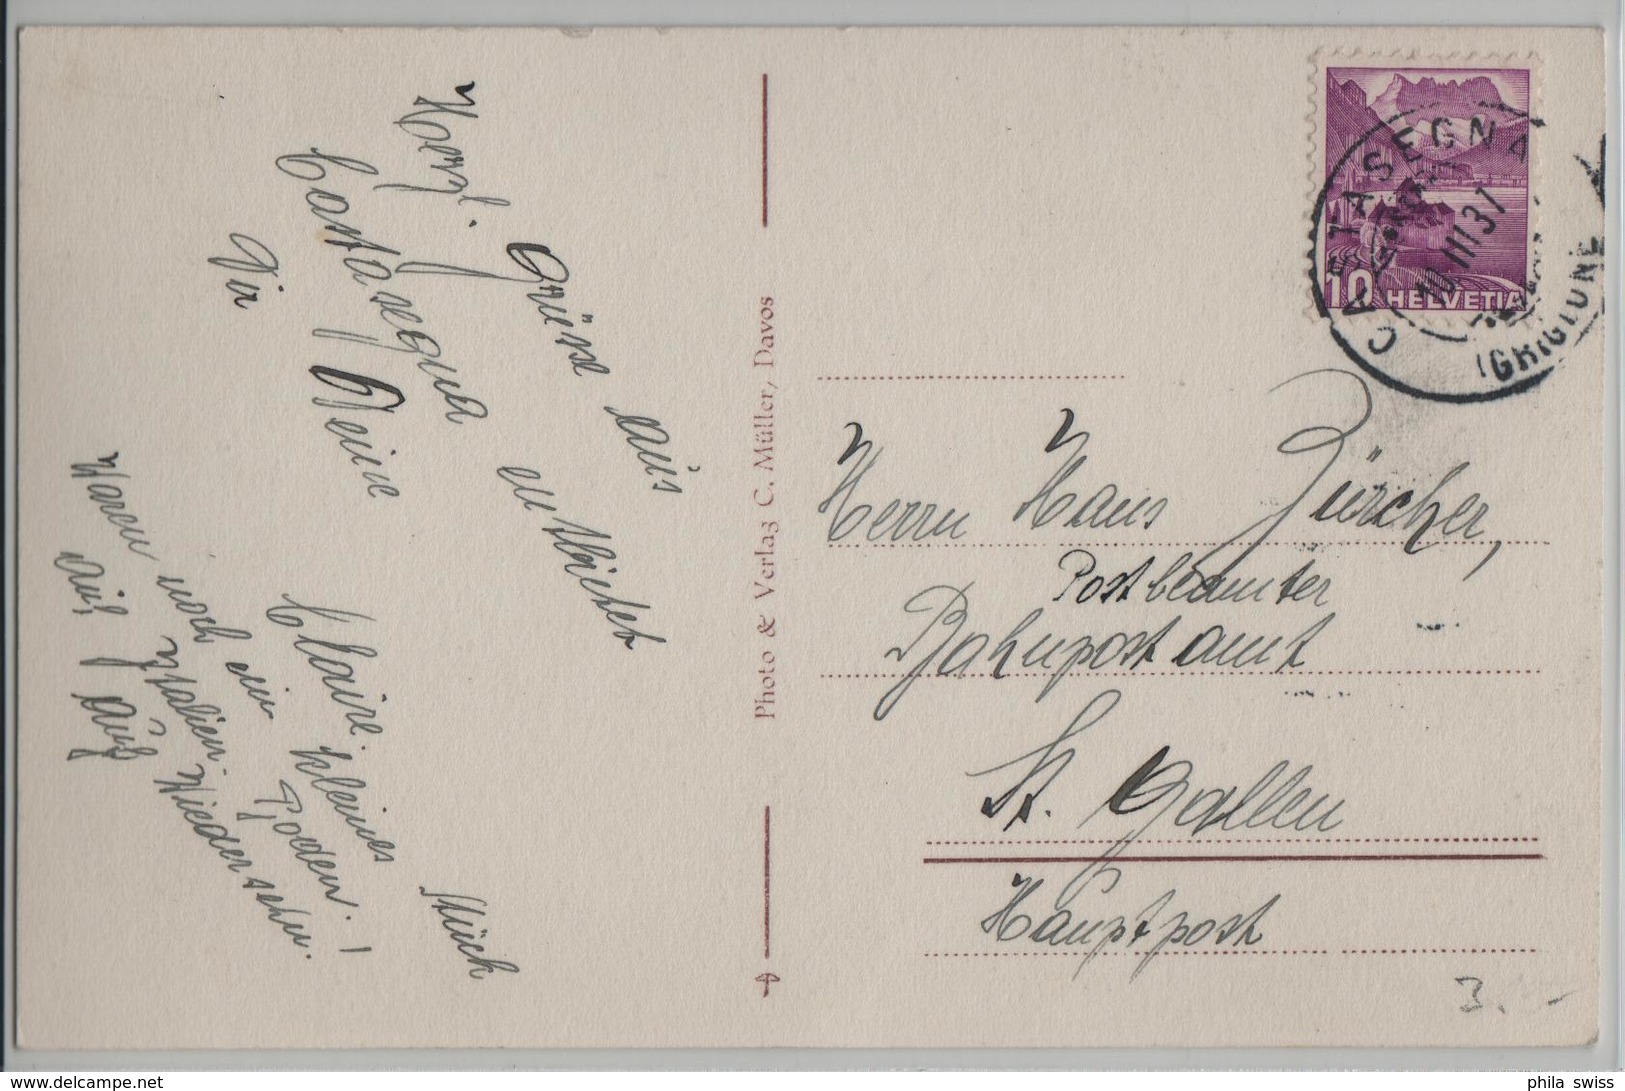 Herzl. Grüsse aus
Castasegna entbietet
Dir Deine
Claire.
Waren noch ein kleines Stück
auf Italien Boden!
Auf Wiedersehn.
Photo & Verlag C. Müller, Davos
CASTASEGNA
10 III 37
(GRIGIONI)
10 HELVETIA
Herrn Hans Zürcher,
Postbeamter
Bahnpostamt
St. Gallen
Hauptpost
3.-
www.delcampe.net
phila swiss